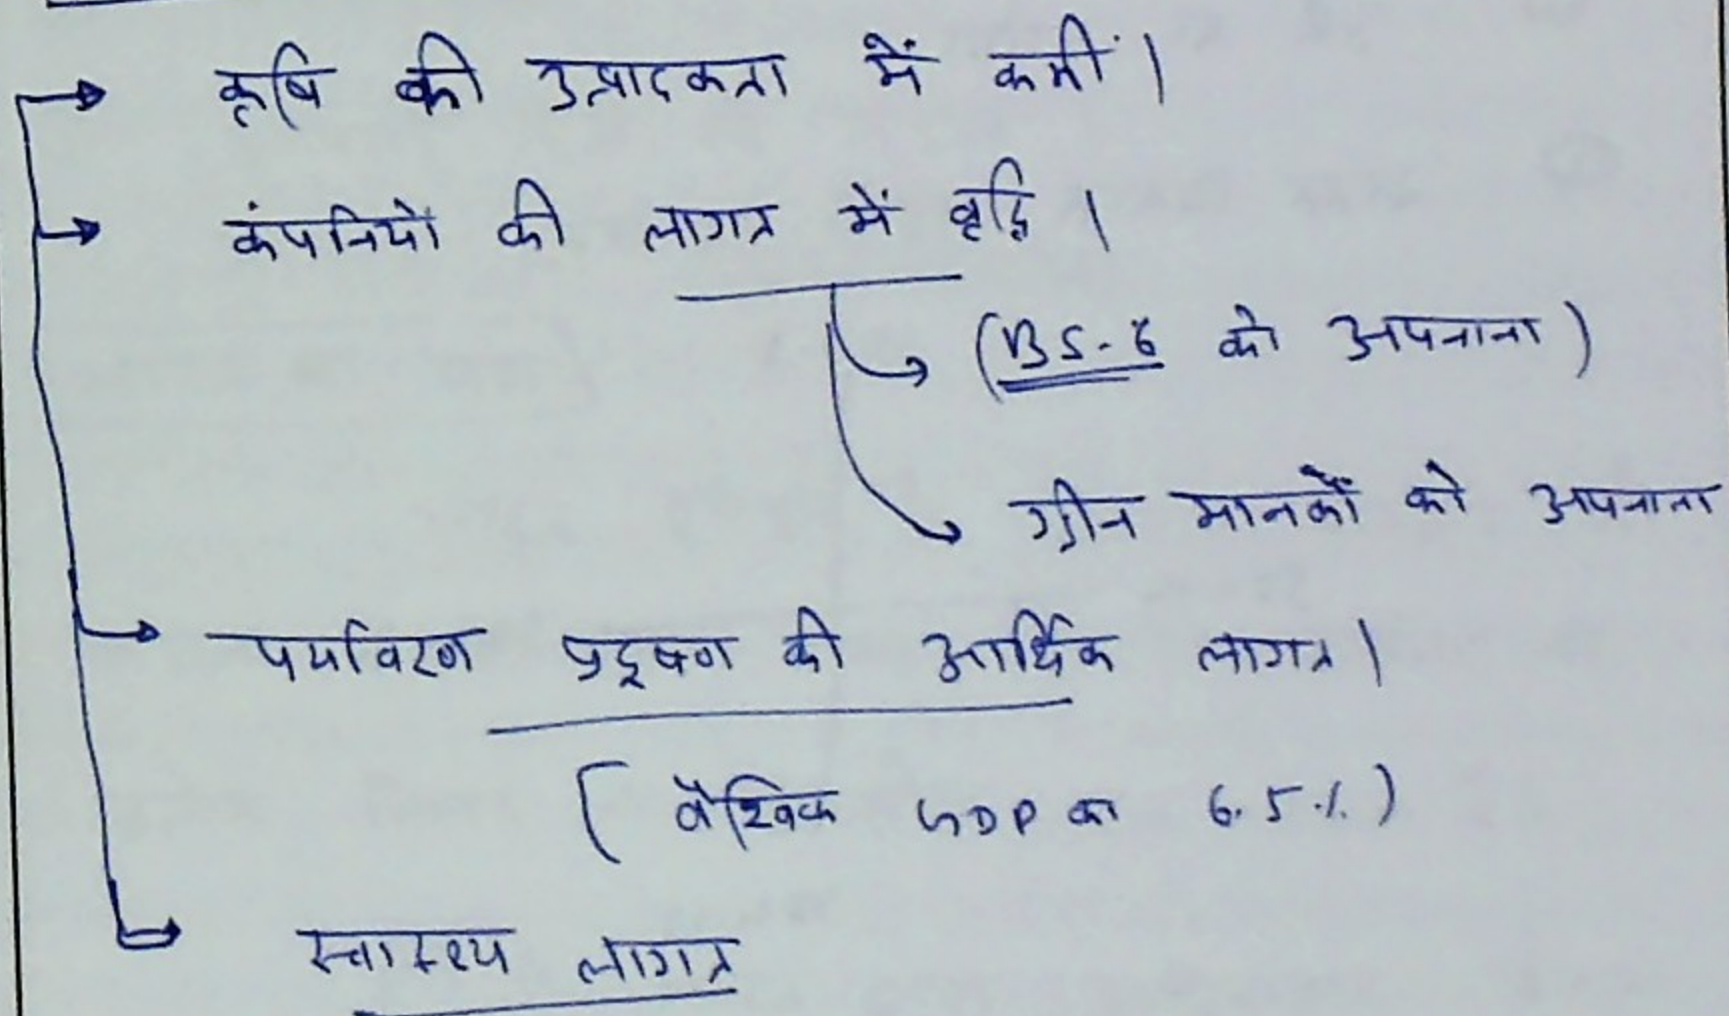 कृषि की उत्पादकता में कमीं।
कंपनियों की लागत में वृद्धि।
(BS-6 को अपनाना)
ग्रीन मानकों को अपनाना
पर्यावरण प्रदूषण की आर्थिक लागत।
(वैश्विक GDP का 6.5%)
स्वास्थ्य लागत